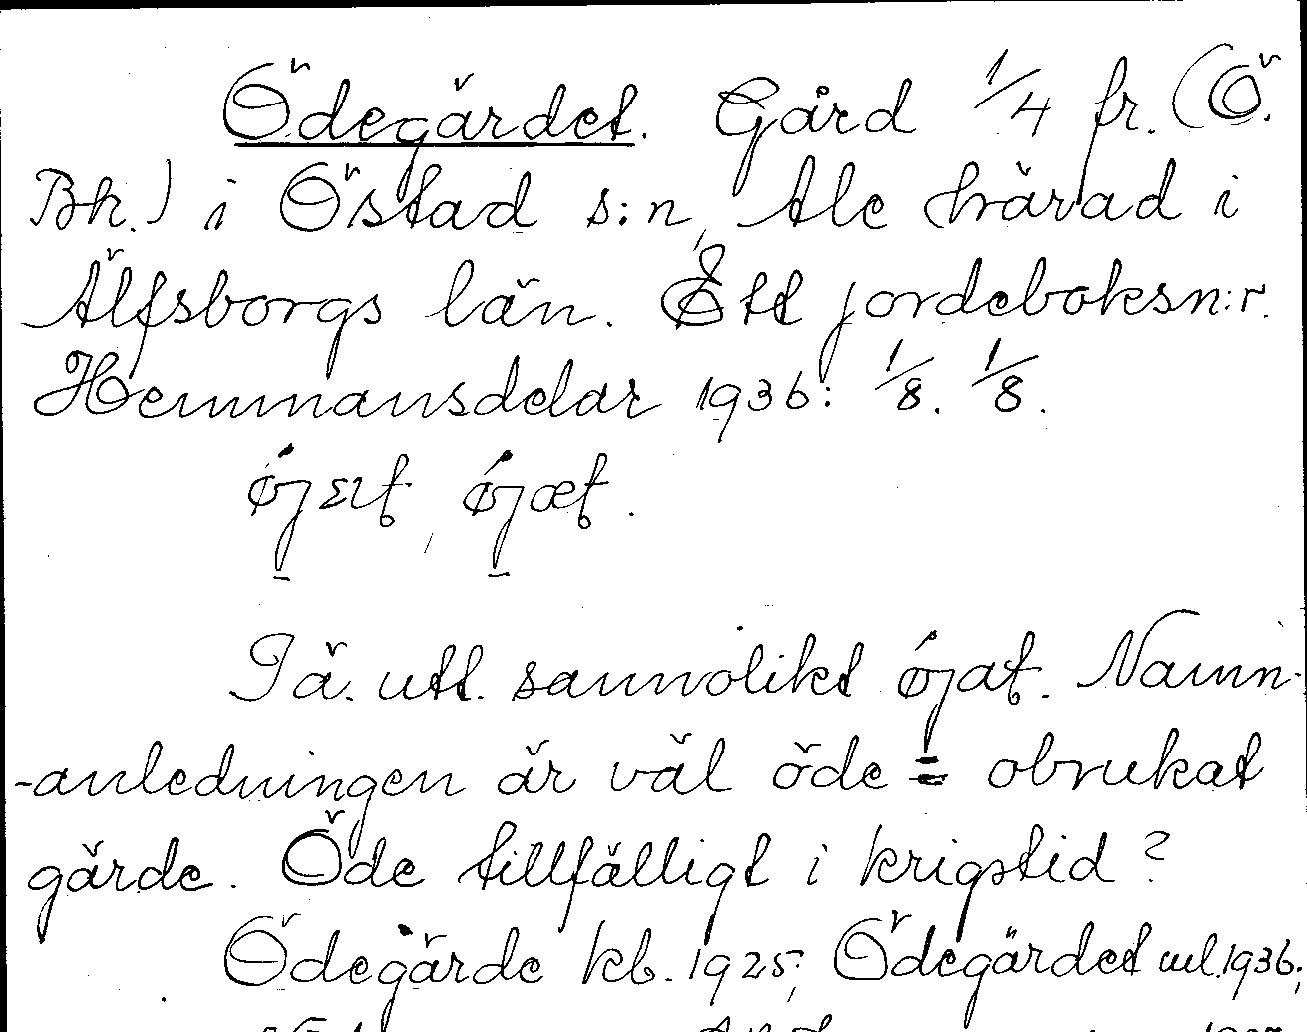 Ödegärdet. Gård 1/4 fr. (Ö.
Bh.) i Östad s:n, Ale härad i
Älfsborgs län. Ett jordeboksn:r.
Hemmansdelar 1936: 1/8. 1/8.
Iä. utt. sannolikt Namn-
-anledningen är väl öde = obrukat
gärde. Öde tillfälligt i krigstid?
Ödegärde kb. 1925; Ödegärdet ml. 1936;